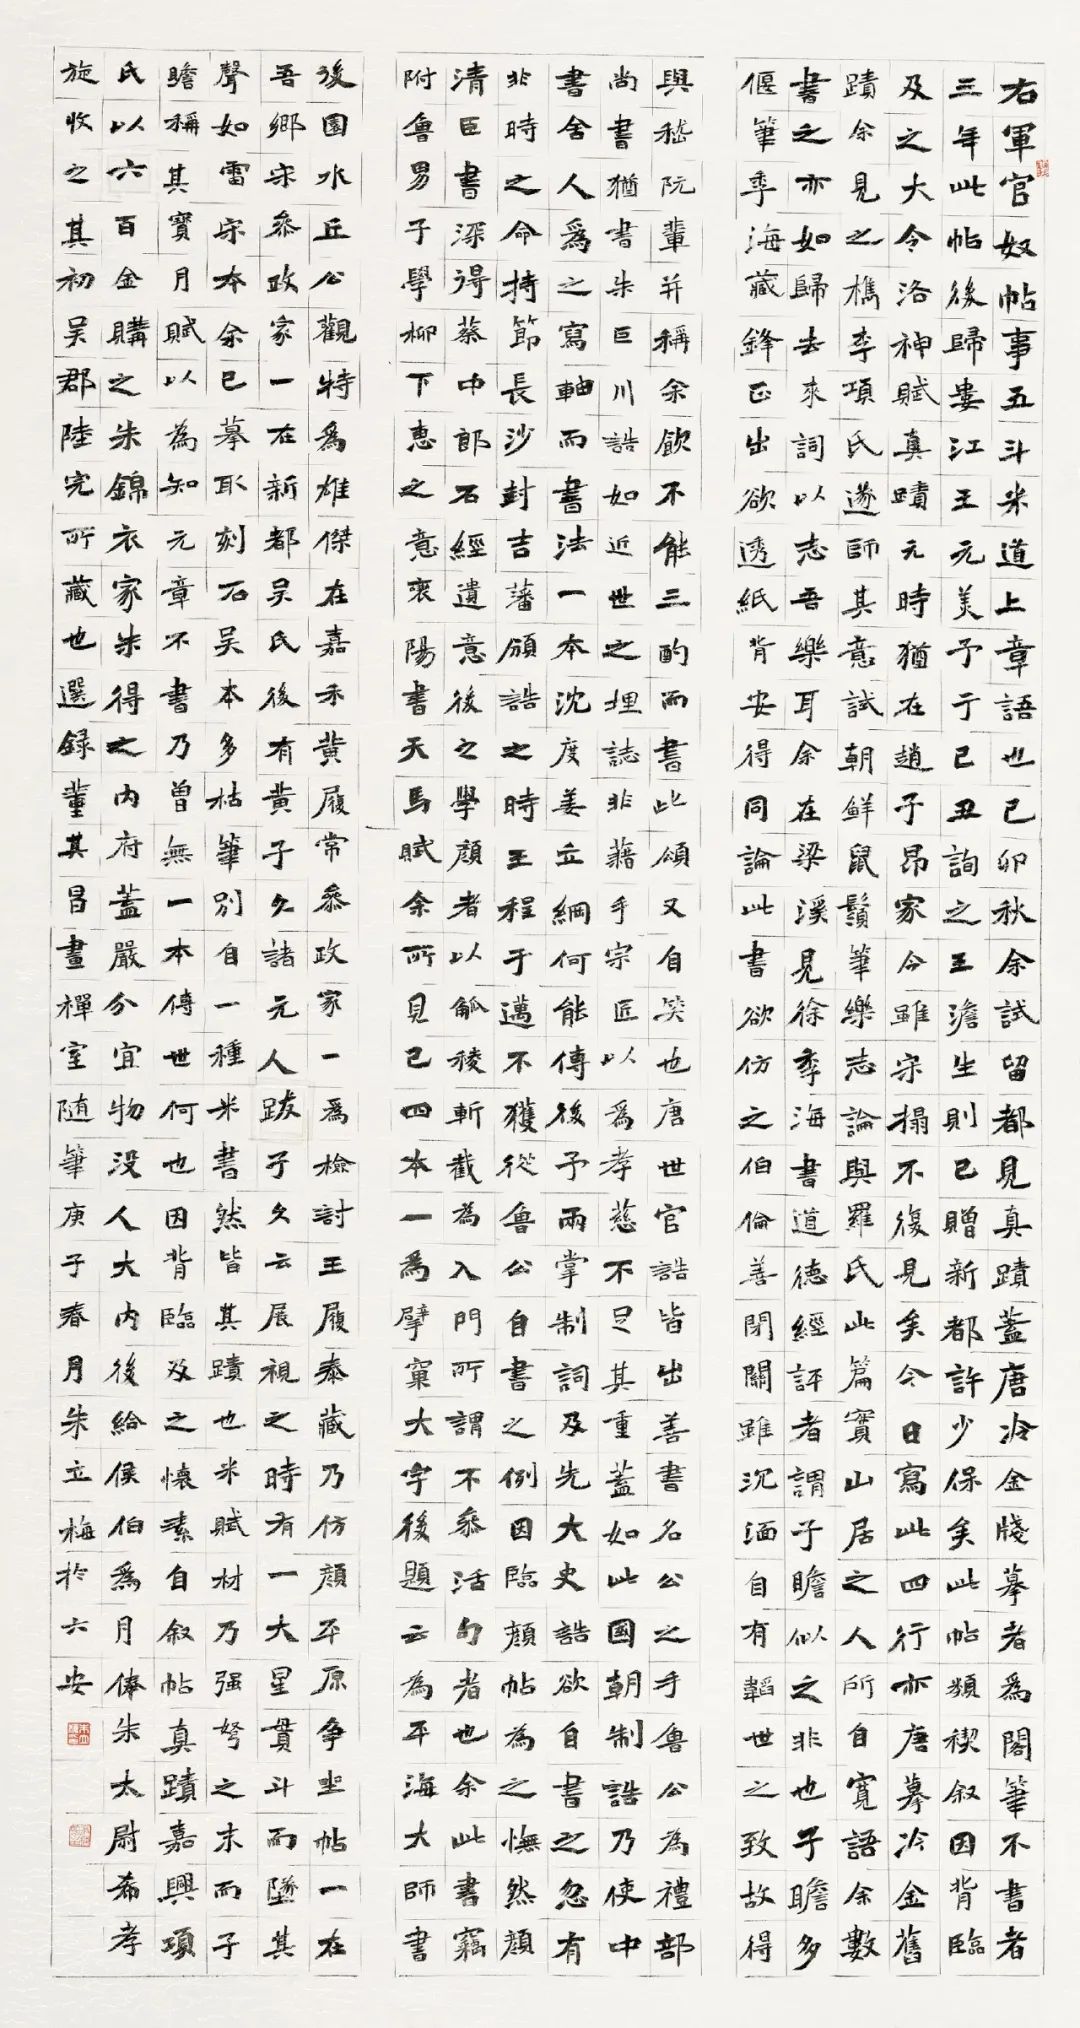 右軍官奴帖事五斗米道上章語也已卯秋余試留都見真蹟蓋唐冷金牋摹者為閣筆不書者
三年此帖後歸婁江王元美予于已丑詢之王澹生則已贈新都許少保矣此帖類禊叙因背臨
及之大令洛神賦真蹟元時猶在趙子昂家今雖宋搨不復見矣今日寫此四行亦唐摹冷金舊
蹟余見之檇李項氏遂師其意試朝鮮鼠鬚筆樂志論與羅氏此篇實山居之人所自寬語余數
書之亦如歸去來詞以志吾樂耳余在梁溪見徐季海書道德經評者謂子瞻似之非也子瞻多
偃筆季海藏鋒正出欲透紙背安得同論此書欲仿之伯倫善閉關雖沉湎自有韜世之致故得
與嵇阮輩并稱余飲不能三酌而書此頌又自笑也唐世官誥皆出善書名公之手魯公為禮部
尚書猶書朱巨川誥如近世之埋誌非藉手宗匠以為孝慈不足其重蓋如此國朝制誥乃使中
書舍人為之寫軸而書法一本沈度姜立綱何能傳後予兩掌制詞及先大史誥欲自書之忽有
非時之命持節長沙封吉藩頒誥之時王程于邁不獲從魯公自書之例因臨顏帖為之憮然顏
清臣書深得蔡中郎石經遺意後之學顏者以觚稜斬截為入門所謂不參活句者也余此書竊
附魯男子學柳下惠之意襄陽書天馬賦余所見已四本一為擘窠大字後題云為平海大師書
後園水丘公觀特為雄傑在嘉禾黃履常參政家一為檢討王履泰藏乃仿顏平原爭坐帖一在
吾鄉宋參政家一在新都吳氏後有黃子久諸元人跋子久云展視之時有一大星貫斗而墜其
聲如雷宋本余已摹取刻石吳本多枯筆別自一種米書然皆其蹟也米賦材乃强弩之末而子
瞻稱其寶月賦以為知元章不書乃曾無一本傳世何也因背臨及之懷素自叙帖真蹟嘉興項
氏以六百金購之朱錦衣家朱得之內府蓋嚴分宜物没人大內後給侯伯為月俸朱太尉希孝
旋收之其初吳郡陸完所藏也選録董其昌畫禪室随筆庚子春月朱立梅於六安